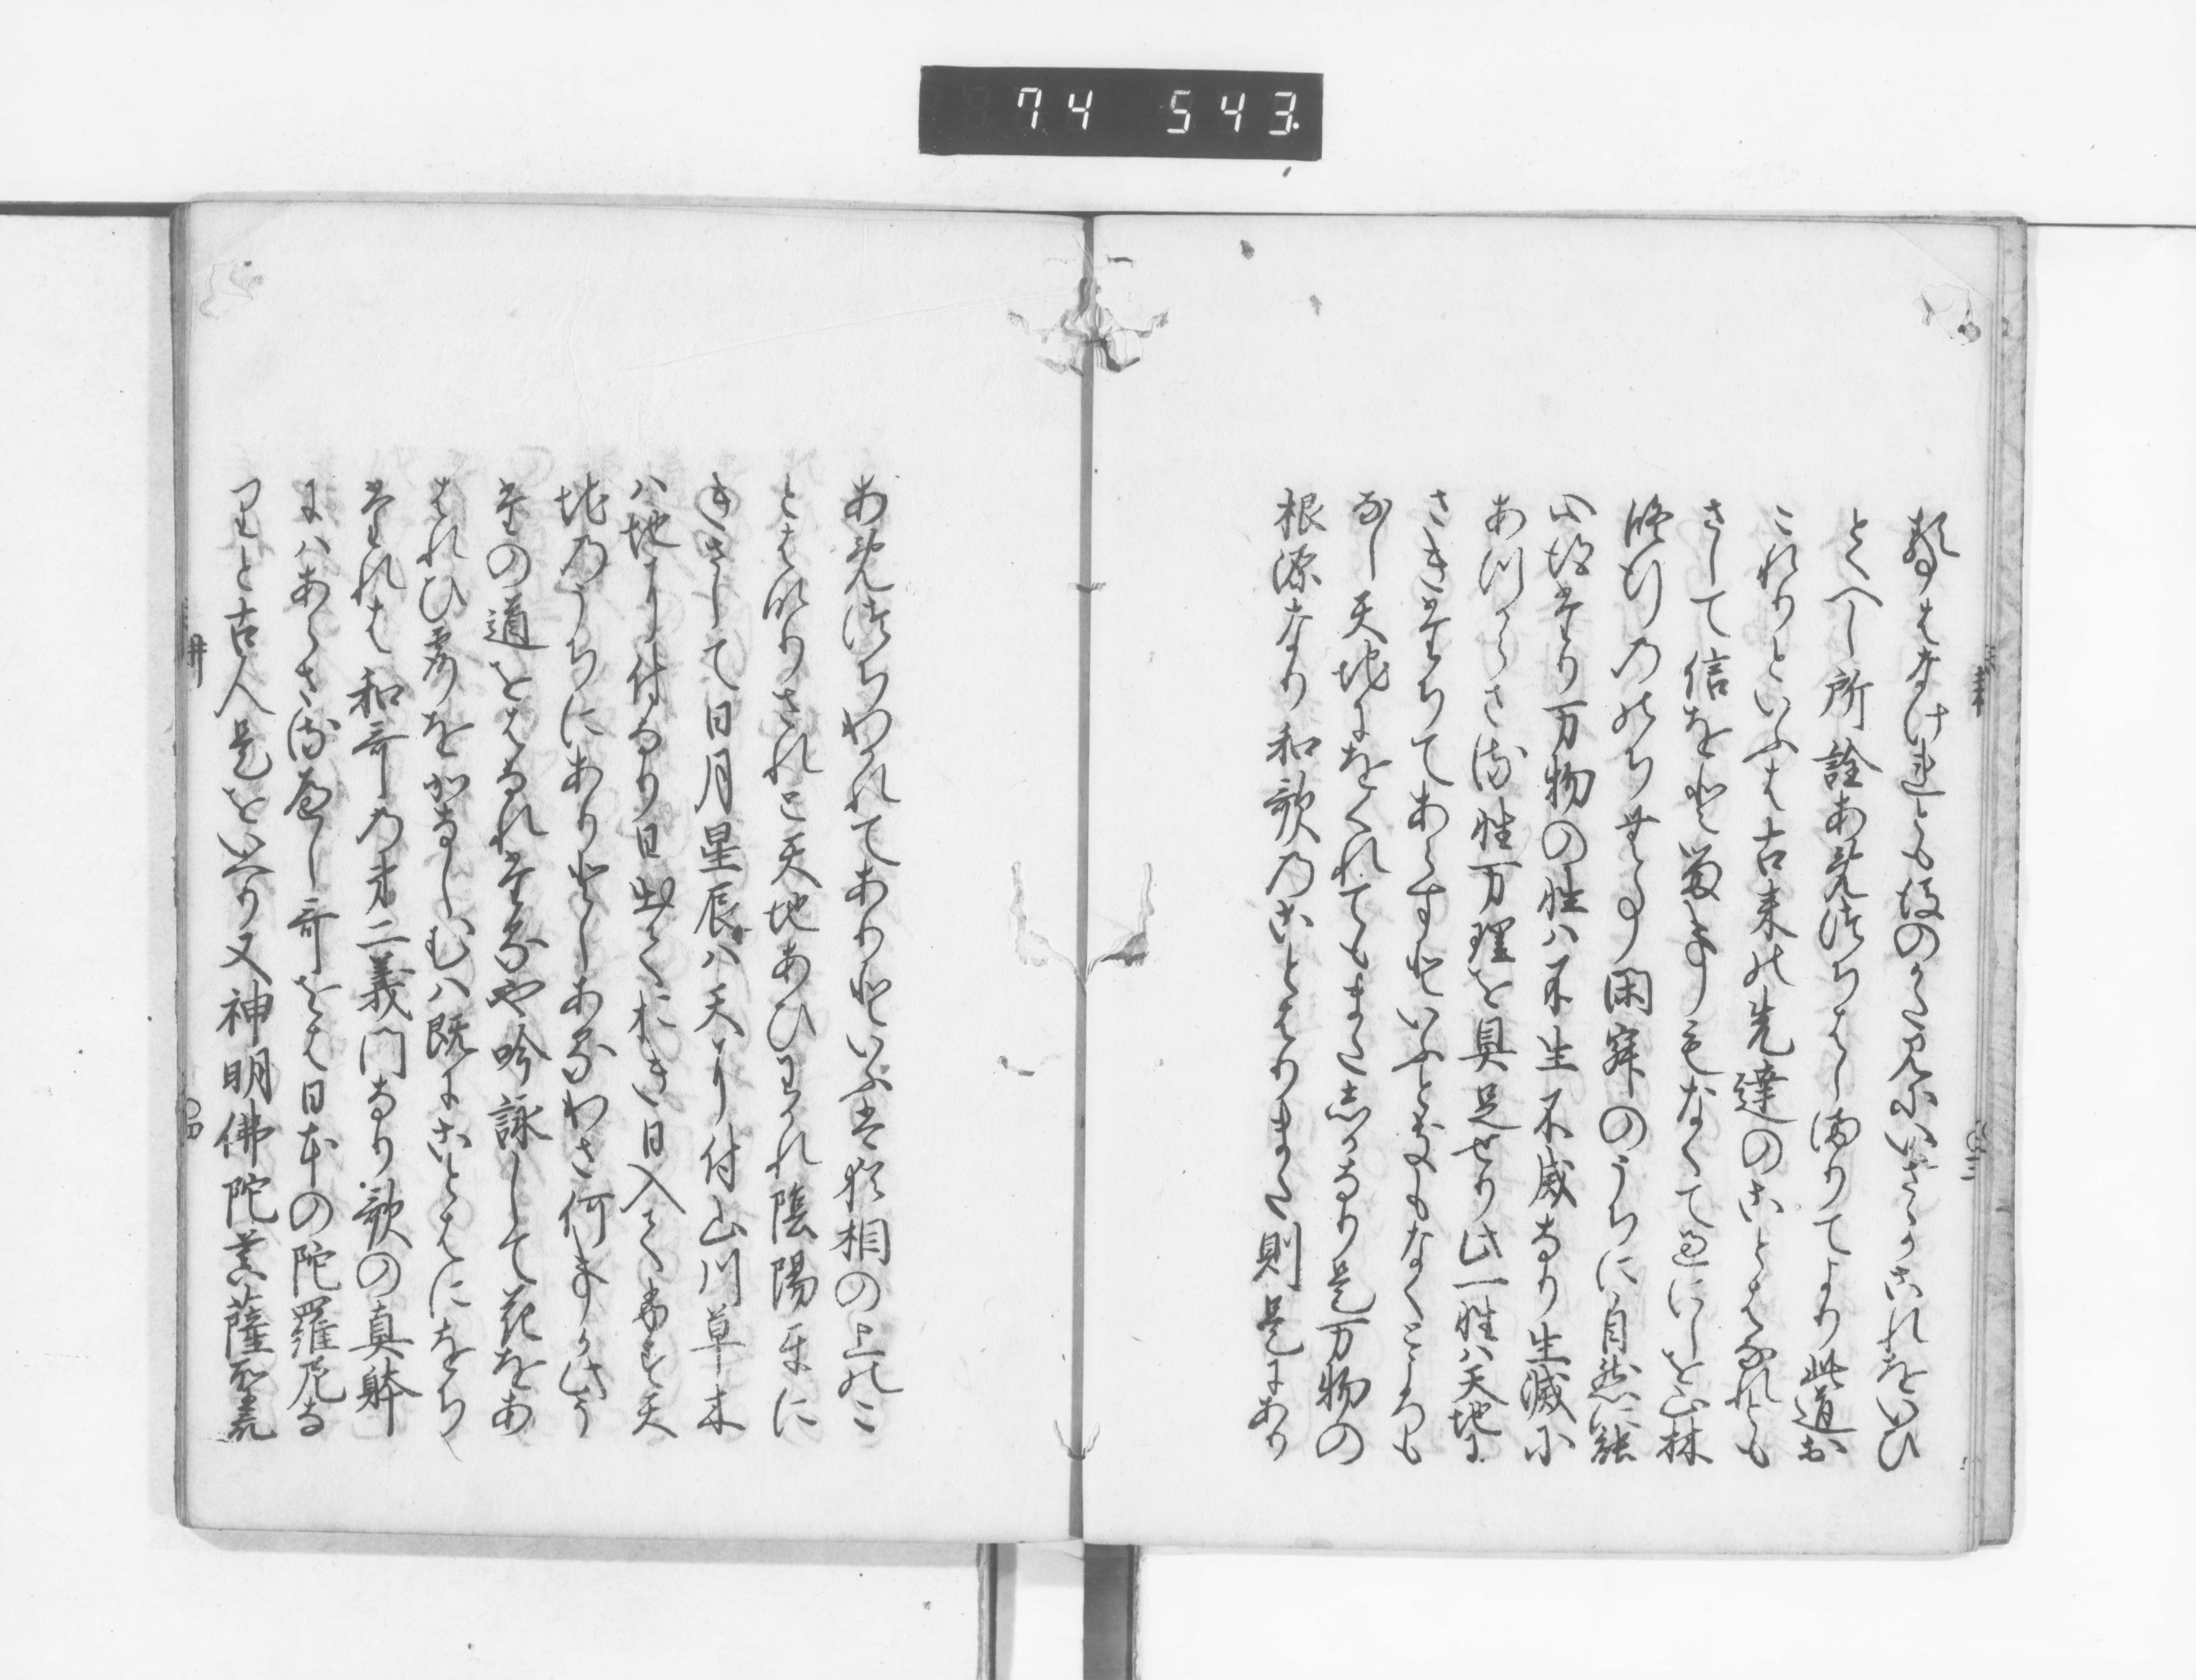 74 543.
類はなけれとも後のかた見にいさゝかこれをいひ
とくへし所詮あめつちはしまりてより此道お
これりといふは古来の先達のことはなれとも
さして信をとる事もなくて過にしを山林
修行のちせつ閑寂のうちに自然に能
心得たり万物の性ハ不生不滅なり生滅に
あつからさる性万理を具足せり此一性ハ天地に
さきたちてあらすといふとなくころも
なし天地にをくれてもまたしかなり是万物の
根源なり和歌のことはりまた則是にあり
あめつちわかれてありといふは猶相の上のこ
とはりされと天地あひわかれ陰陽
きさして日月星辰ハ天より付山川草木
ハ地より付なり日出てにき日入て 天
地のうちにありとしあるわさ何事か此う
たの道をはなれたるや吟詠して花をあ
はれひ露をかなしむハ既にことはにをち
たれは和哥の第二義門なり歌の真躰
にハあらさるへし哥をは日本の陀羅尼な
りと古人是をいへり又神明佛陀菩薩聖衆